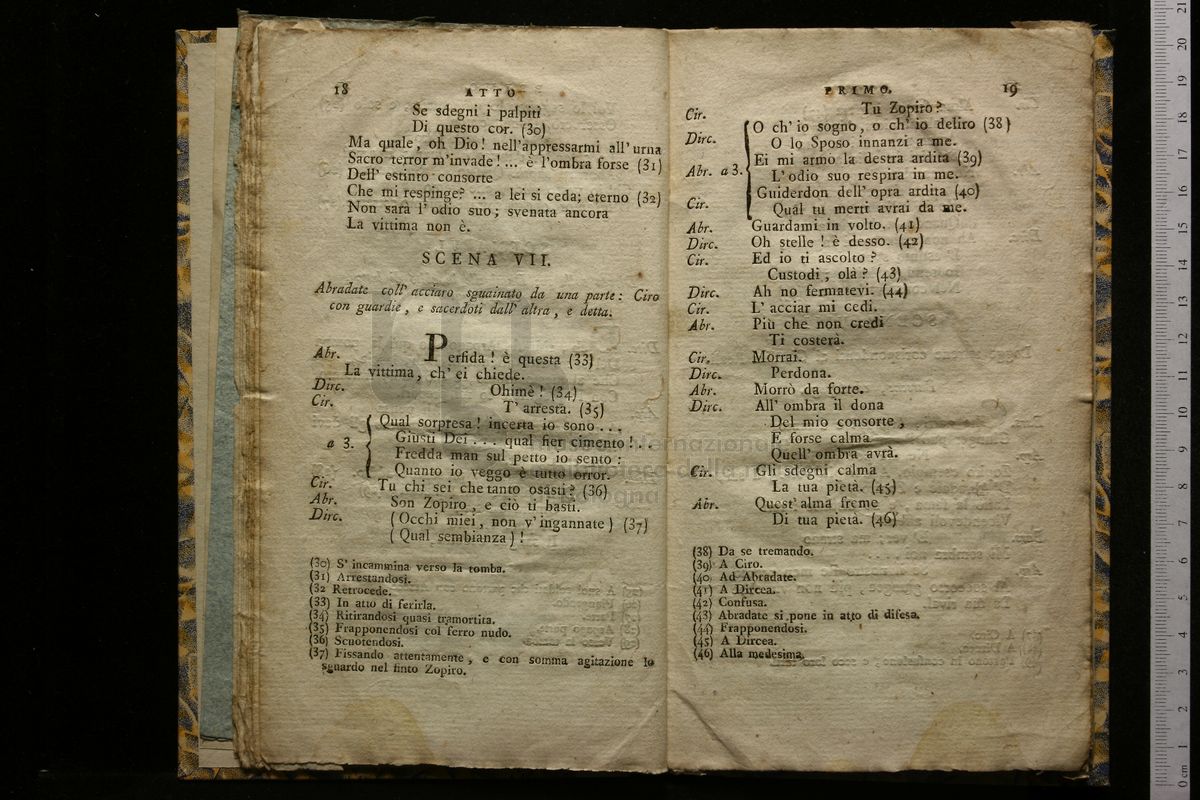 18
ATTO
Se sdegni i palpiti
Di questo cor. (30)
Ma quale, oh Dio! nell'appressarmi all'urna
Sacro terror m'invade! ... è l'ombra forse (31)
Dell' estinto consorte
Che mi respinge? ... a lei si ceda; eterno (32)
Non sarà l'odio suo; svenata ancora
La vittima non è.
SCENA VII.
Abradate coll' acciaro sguainato da una parte: Ciro
con guardie, e sacerdoti dall' altra, e detta.
Abr. Perfida! è questa (33)
La vittima, ch' ei chiede.
Dirc. Ohimè! (34)
Cir. T' arresta. (35)
Qual sorpresa! incerta io sono ...
a 3. Giusti Dei ... qual fier cimento! ..
Fredda man sul petto io sento:
Quanto io veggo è tutto orror.
Cir. Tu chi sei che tanto osasti? (36)
Abr. Son Zopiro, e ciò ti basti.
Dirc. (Occhi miei, non v'ingannate) (37)
(Qual sembianza)!
(30) S' incammina verso la tomba.
(31) Arrestandosi.
(32 Retrocede.
(33) In atto di ferirla.
(34) Ritirandosi quasi tramortita.
(35) Frapponendosi col ferro nudo.
(36) Scuotendosi.
(37) Fissando attentamente, e con somma agitazione lo
sguardo nel finto Zopiro.
PRIMO.
19
Cir. Tu Zopiro?
Dirc. O ch' io sogno, o ch' io deliro (38)
O lo Sposo innanzi a me.
Abr. a 3. Ei mi armo la destra ardita (39)
L'odio suo respira in me.
Cir. Guiderdon dell' opra ardita (40)
Qual tu merti avrai da me.
Abr. Guardami in volto. (41)
Dirc. Oh stelle! è desso. (42)
Cir. Ed io ti ascolto?
Custodi, olà? (43)
Dirc. Ah no fermatevi. (44)
Cir. L' acciar mi cedi.
Abr. Più che non credi
Ti costerà.
Cir. Morrai.
Dirc. Perdona.
Abr. Morrò da forte.
Dirc. All' ombra il dona
Del mio consorte,
E forse calma
Quell' ombra avrà.
Cir. Gli sdegni calma
La tua pietà. (45)
Abr. Quest' alma freme
Di tua pietà. (46)
(38) Da se tremando.
(39) A Ciro.
(40. Ad Abradate.
(41) A Dircea.
(42) Confusa.
(43) Abradate si pone in atto di difesa.
(44) Frapponendosi.
(45) A Dircea.
(46) Alla medesima.